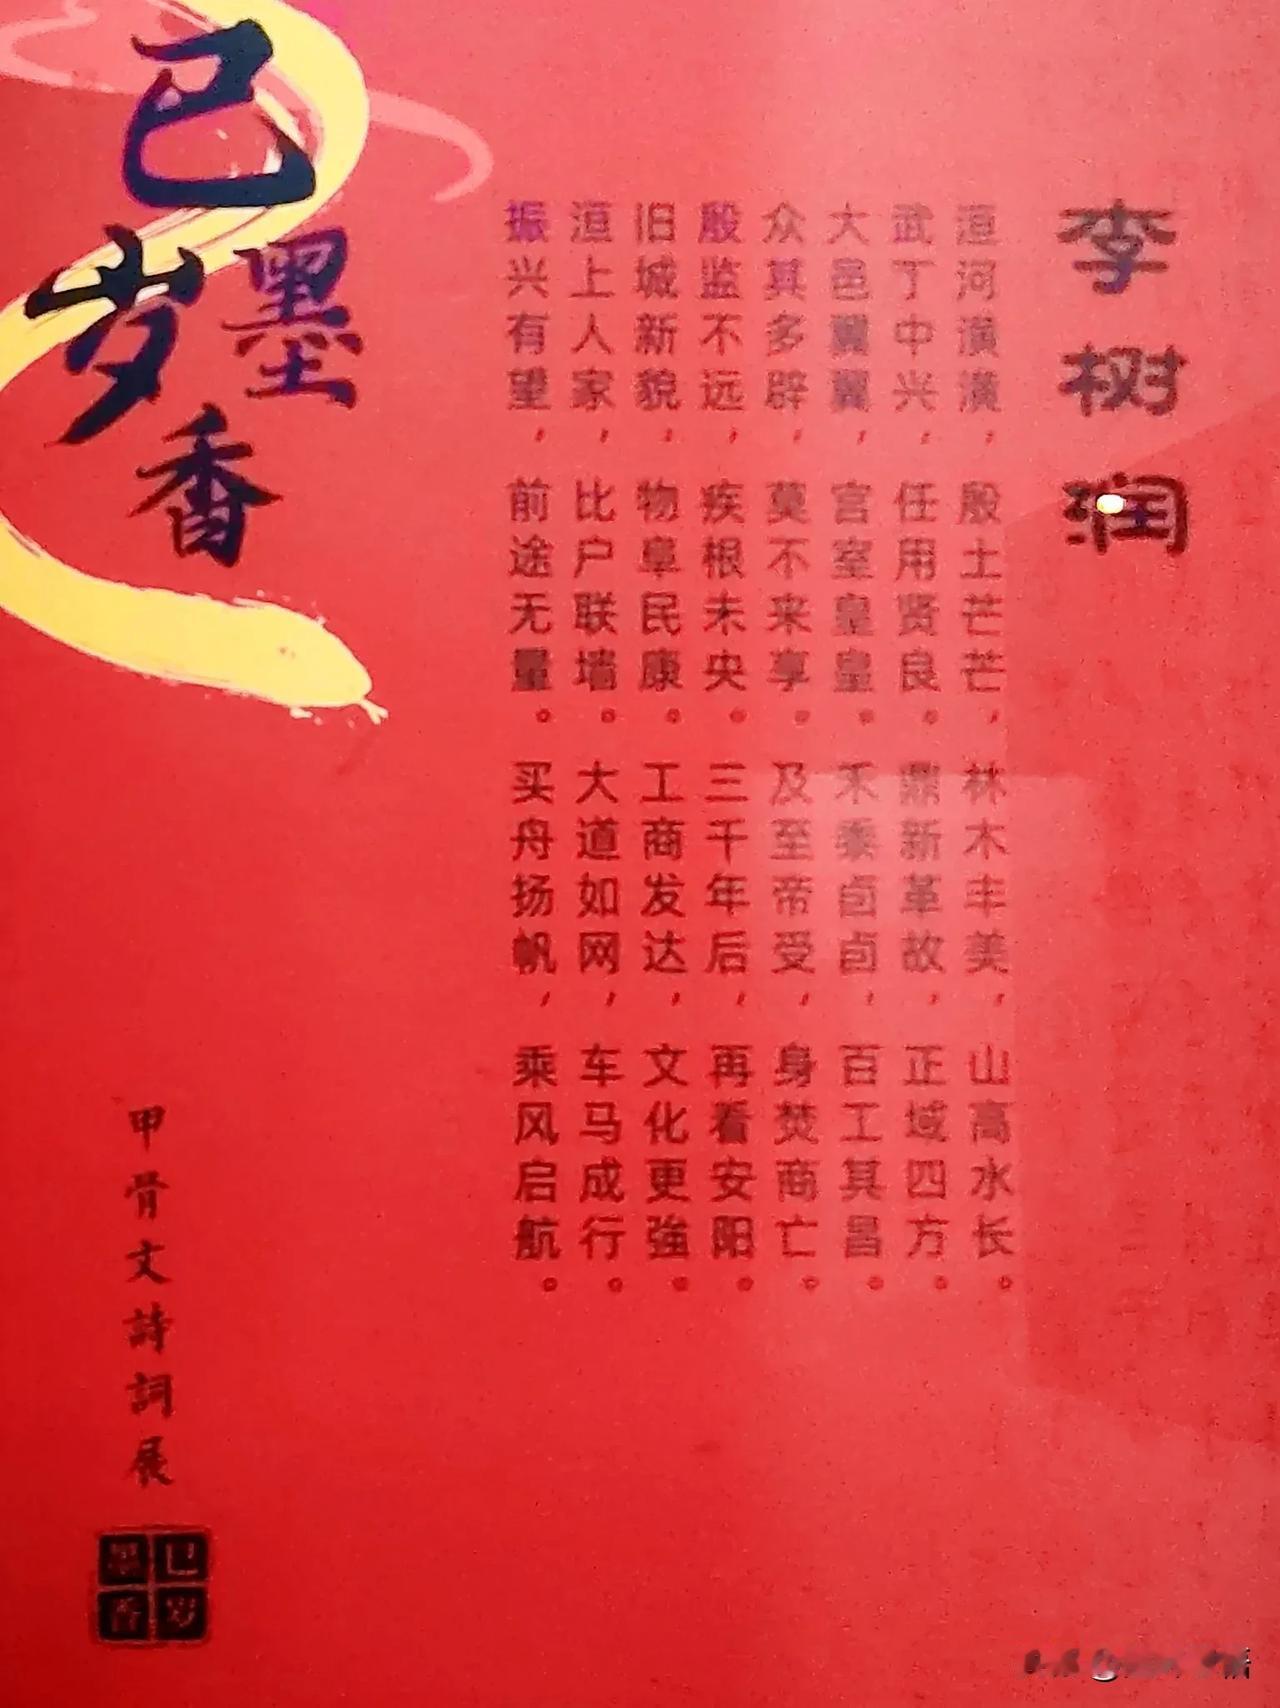 李树润
洹河潢潢，殷土芒芒，林木丰美，山高水长。
武丁中兴，任用贤良。鼎新革故，正域四方。
大邑翼翼，宫室皇皇。禾黍卣卣，百工其昌。
众其多辟，莫不来享。及至帝受，身焚商亡。
殷监不远，疾根未央。三千年后，再看安阳。
旧城新貌，物阜民康。工商发达，文化更強。
洹上人家，比户联墙。大道如网，车马成行。
振兴有望，前途无量。买舟扬帆，乘风启航。
巳岁墨香
甲骨文詩詞展
巳岁墨香